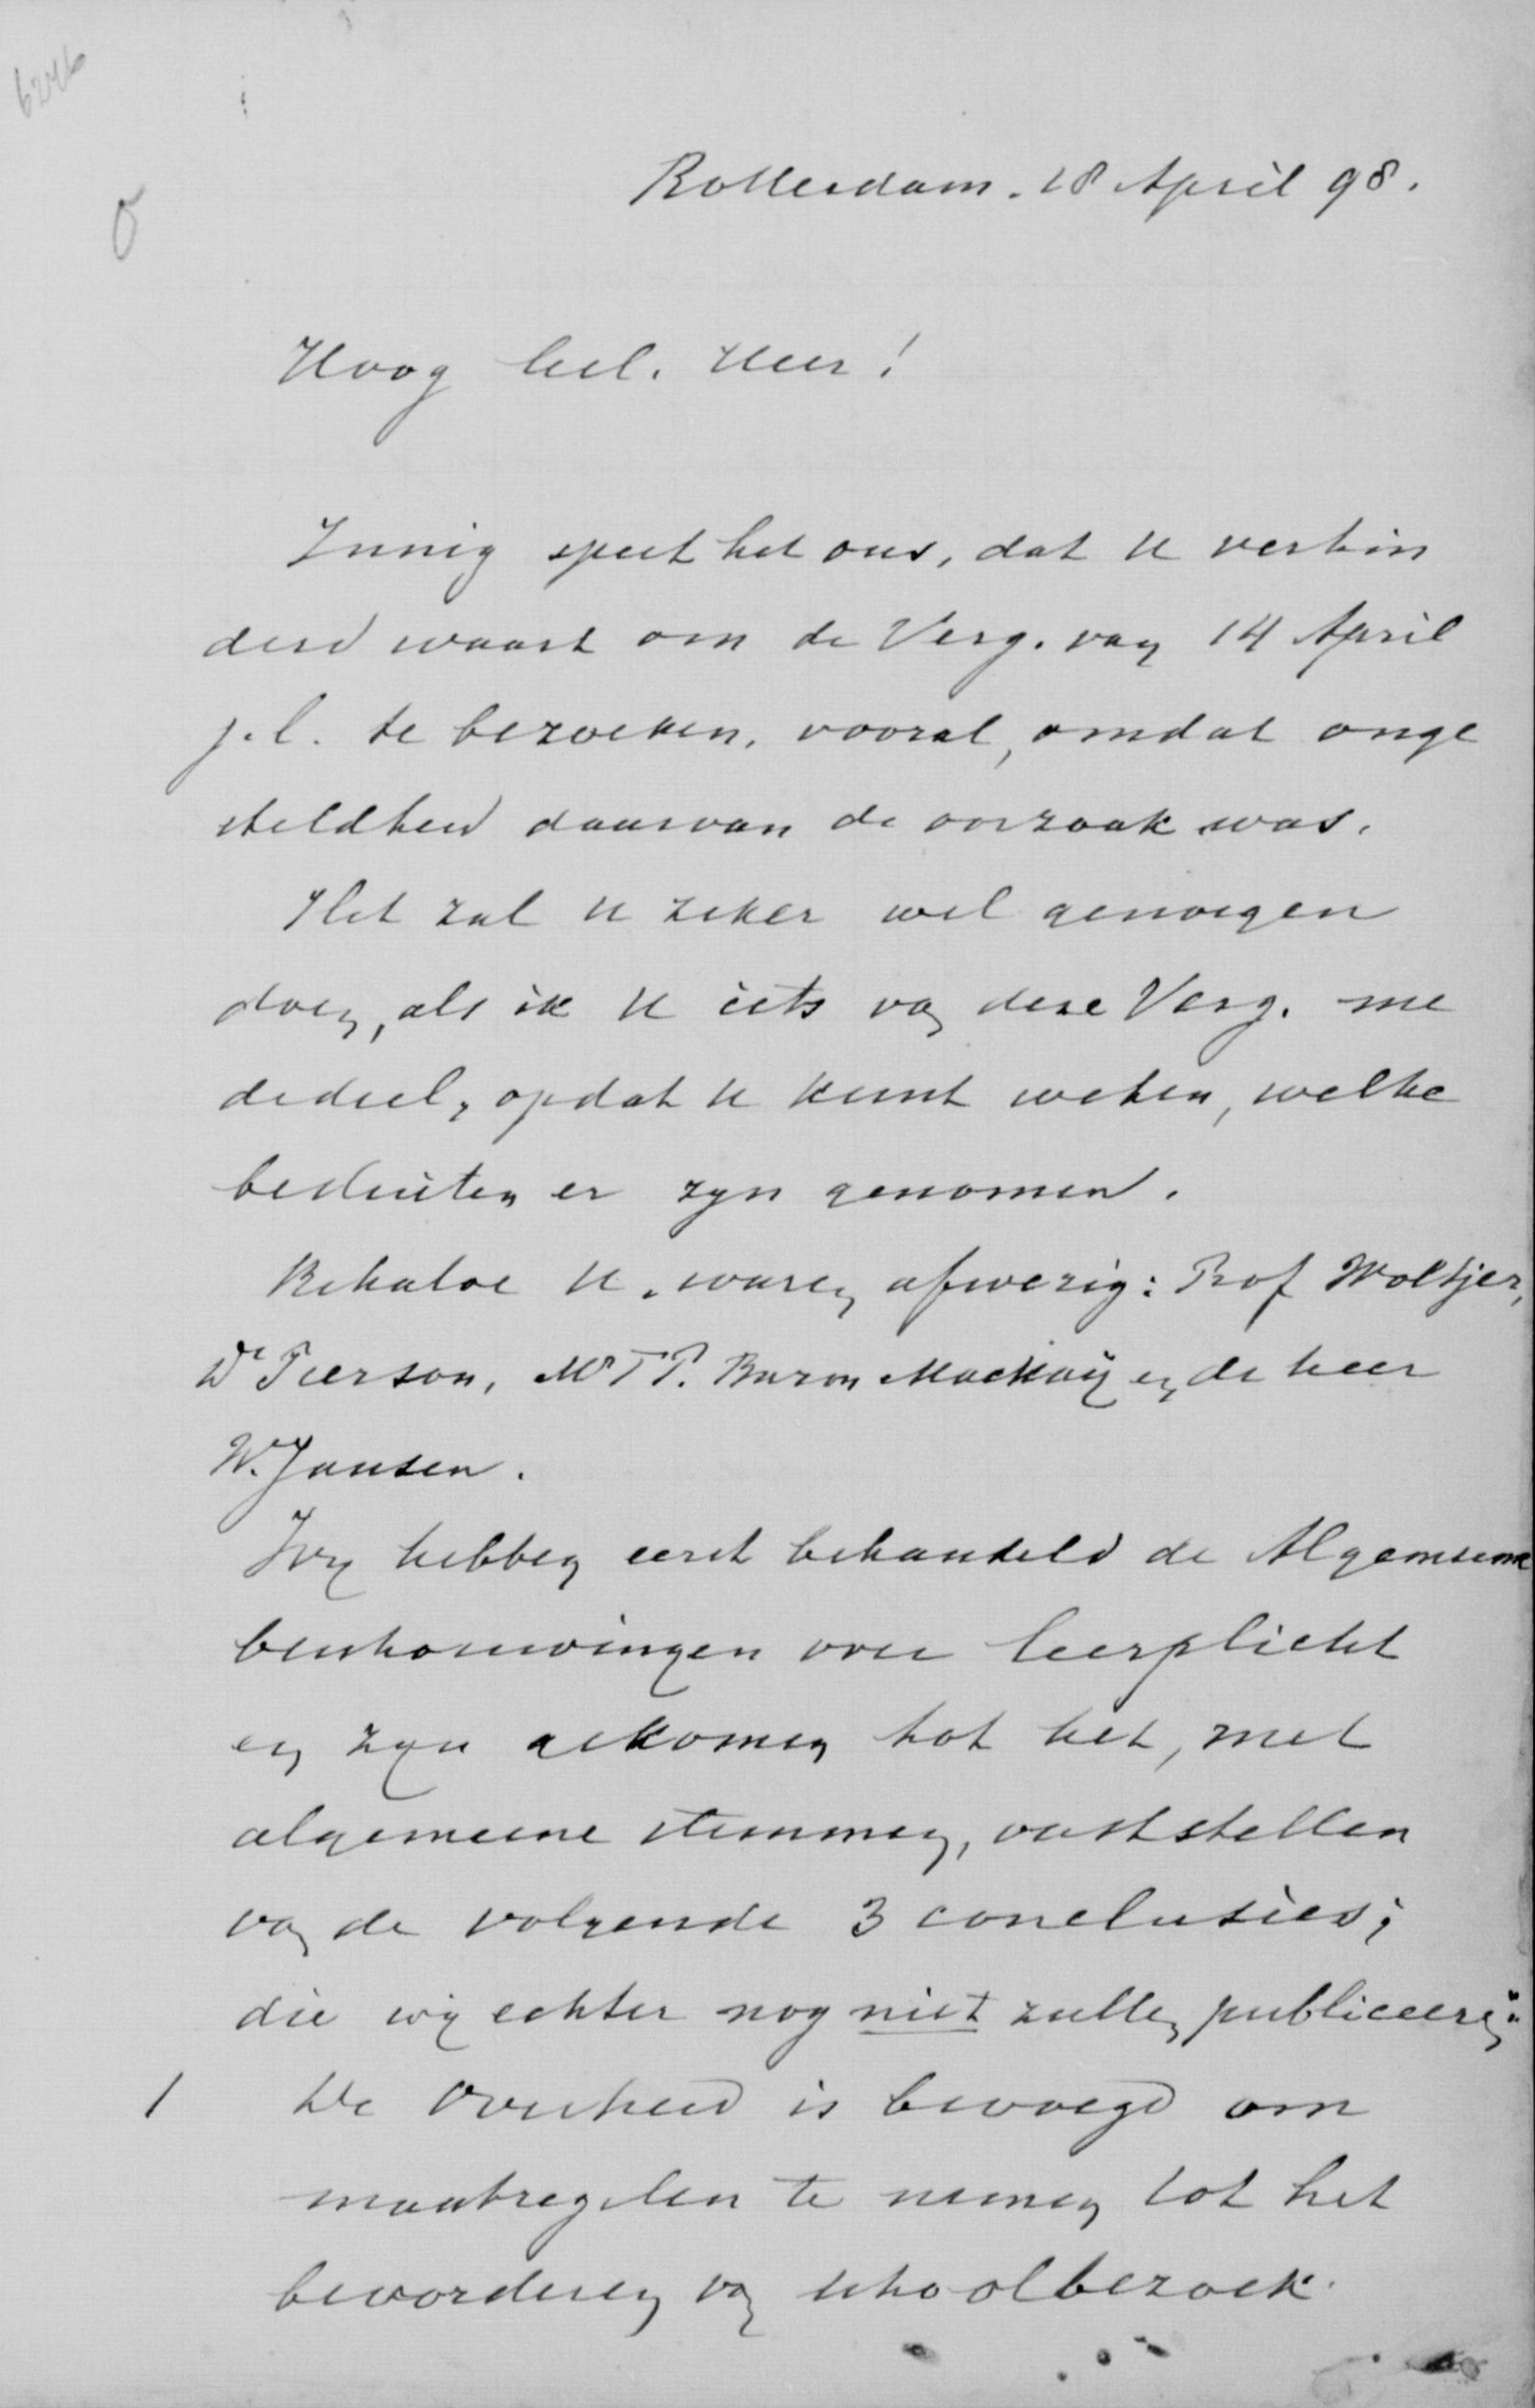 6246
Rotterdam. 18 April 98.
Hoog Gel. Heer!
Innig speet het ons, dat U verhin
derd waart om de Verg. van 14 April
j.l. te bezoeken, vooral, omdat onge
steldheid daarvan de oorzaak was.
Het zal U zeker wel genoegen
doen, als ik U iets van deze Verg. me
dedeel, opdat U kunt weten, welke
besluiten er zyn genomen.
Behalve U. waren afwezig: Prof Woltjer,
Dr Pierson, Mr T P. Baron Mackay en de heer
W. Jansen.
Wy hebben eerst behandeld de Algemeene
beschouwingen over leerplicht
en zyn gekomen tot het, met
algemeene stemmen, vaststellen
van de volgende 3 conclusies;
die wy echter nog niet zullen publiceeren:
1 De Overheid is bevoegd om
maatregelen te nemen tot het
bevorderen van schoolbezoek.